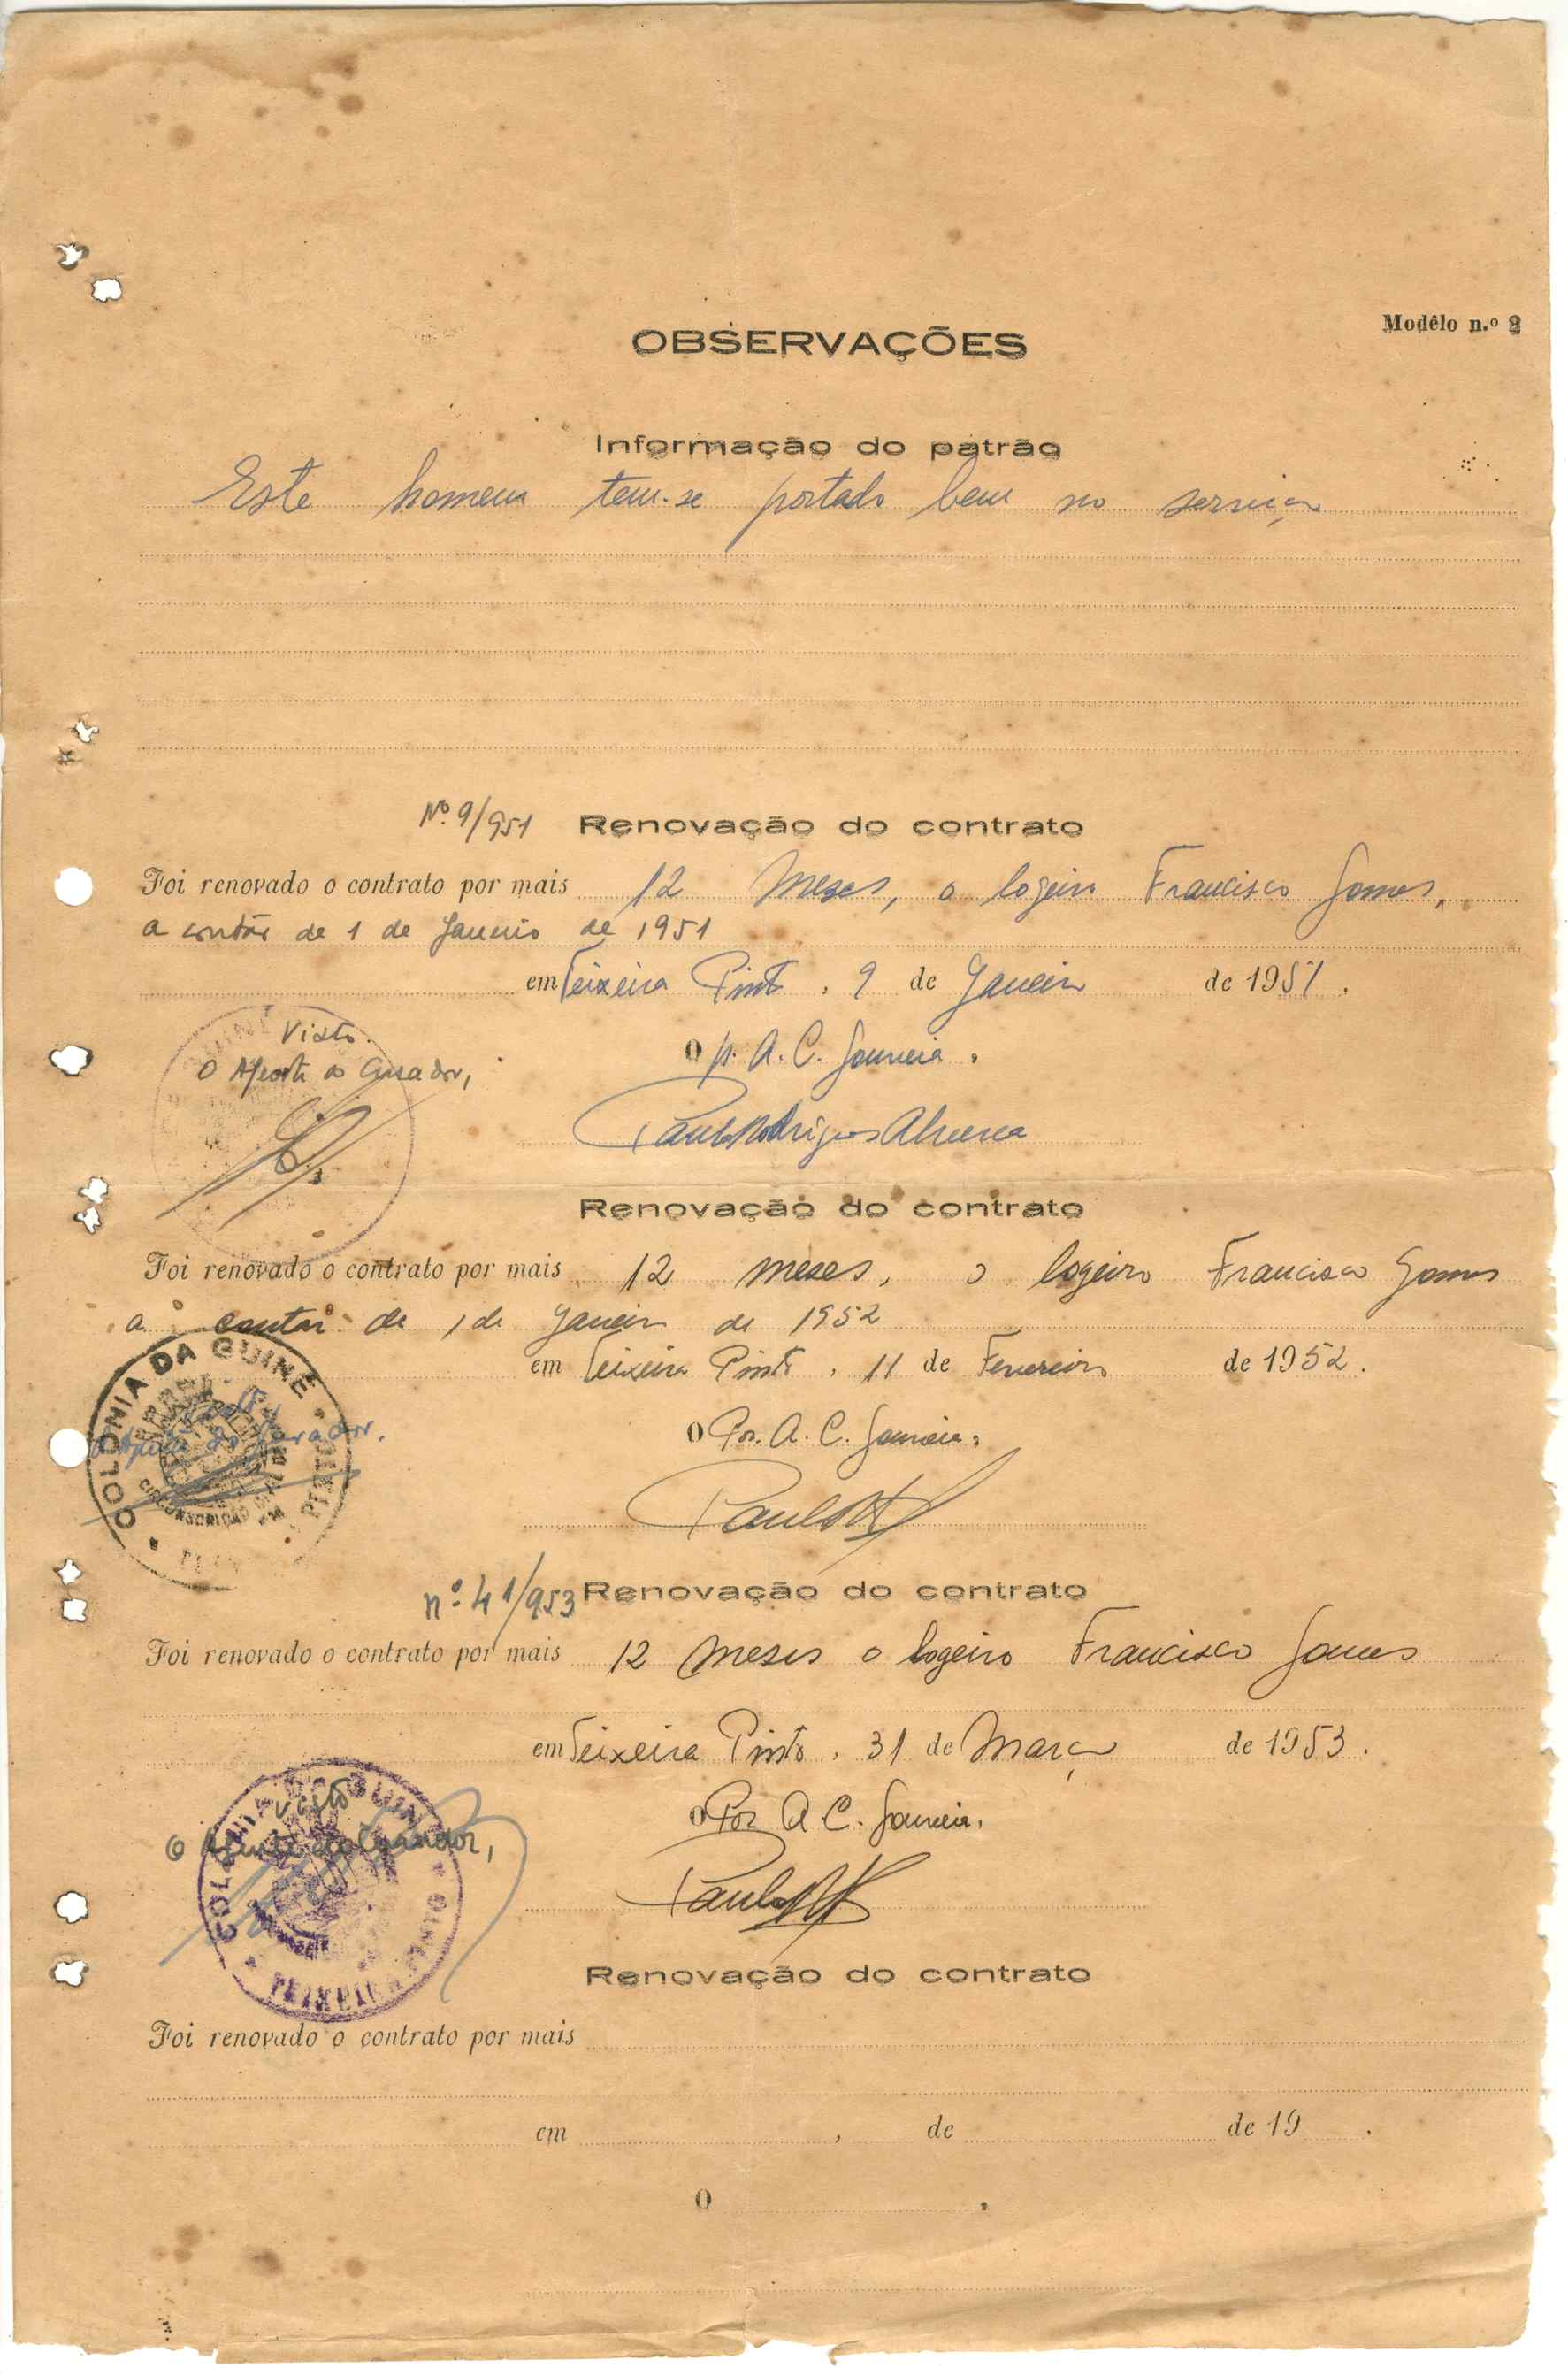 Modêlo n.º 2
OBSERVAÇÕES
Informação do patrão
Este homem tem-se portado bem no serviço
Nº 9/951 Renovação do contrato
Foi renovado o contrato por mais 12 meses, o logeiro Francisco Gomes,
a contar de 1 de Janeiro de 1951
em Teixeira Pinto, 9 de Janeiro de 1951.
Visto.
O p. A. C. Gouveia,
O Agente do Curador,
Paulo Rodrigues
Renovação do contrato
Foi renovado o contrato por mais 12 meses, o logeiro Francisco Gomes
a contar de 1 de Janeiro de 1952
em Teixeira Pinto, 11 de Fevereiro de 1952.
COLONIA DA GUINÉ
CIRCUNSCRIÇÃO
do Curador.
O Por. A. C. Gouveia,
Paulo
nº 41/953 Renovação do contrato
Foi renovado o contrato por mais 12 meses o logeiro Francisco Gomes
em Teixeira Pinto, 31 de Março de 1953.
Visto
O Por A C. Gouveia,
O Agente do Curador,
TEIXEIRA PINTO
Paulo
Renovação do contrato
Foi renovado o contrato por mais
em , de de 19 .
O ,